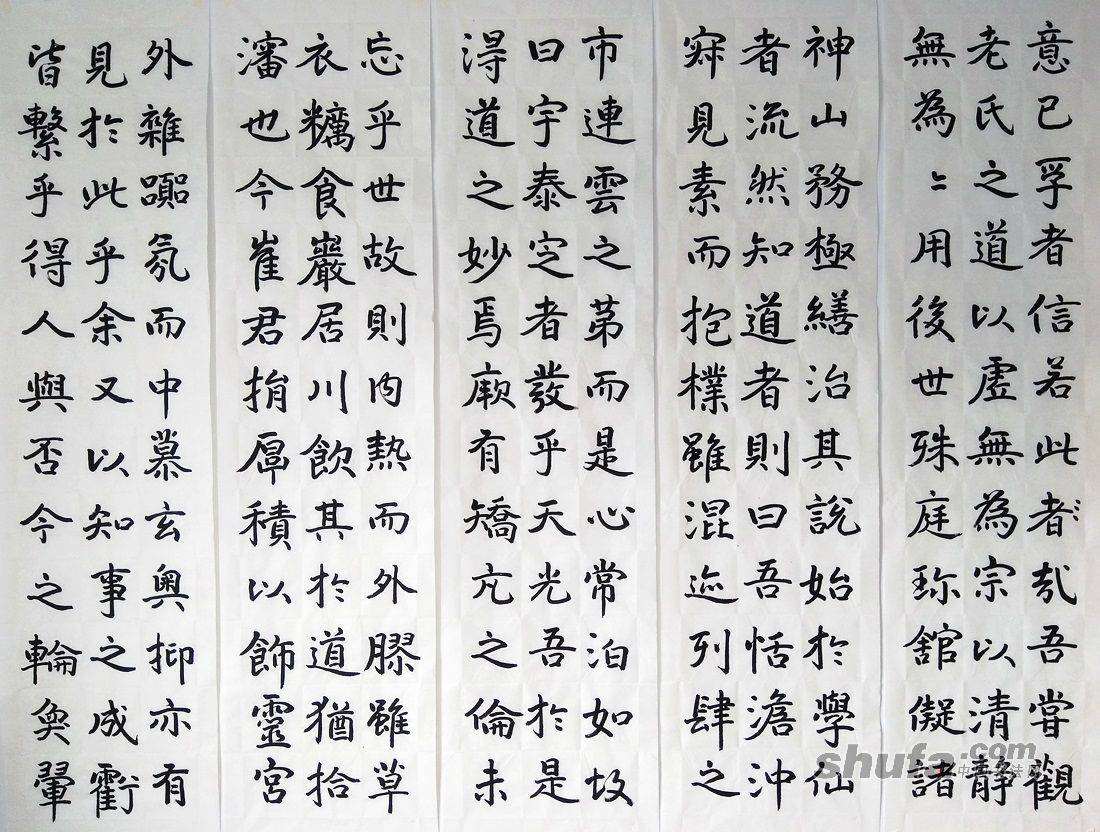 意已孚者信若此者哉吾嘗觀
老氏之道以虛無為宗以清靜
無為〻用後世殊庭珎舘儗諸
神山務極繕治其說始於學仙
者流然知道者則曰吾恬澹沖
寂見素而抱樸雖混迹列肆之
市連雲之苐而是心常泊如故
曰宇泰定者發乎天光吾於是
淂道之妙焉厥有矯亢之倫未
忘乎世故則内熱而外膠雖草
衣糲食巖居川飲其於道猶拾
瀋也今崔君捐厚積以飾靈宮
外雜嚻氛而中慕玄奧抑亦有
見於此乎余又以知事之成虧
皆繫乎得人與否今之輪奐翬
shufa.com